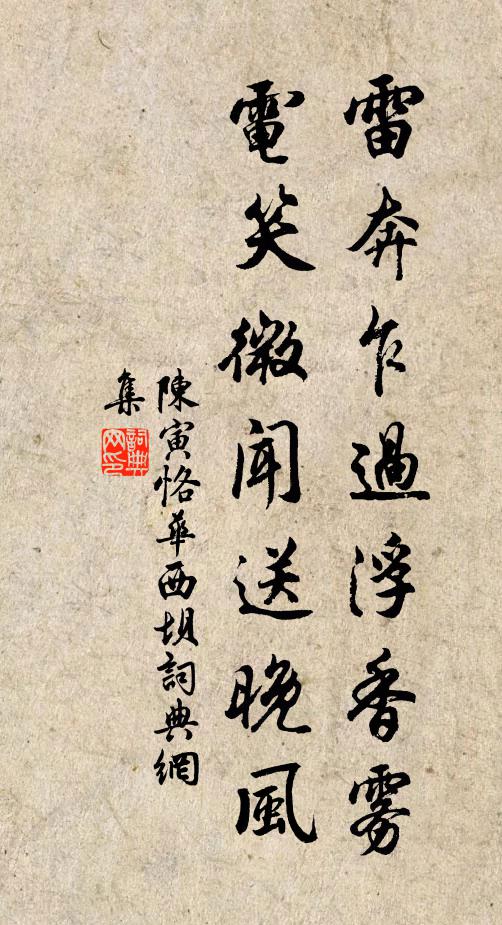 雷奔乍過浮香霧
電笑微聞送晚風
陳寅恪華西坝詞典網
集
詞典
网印